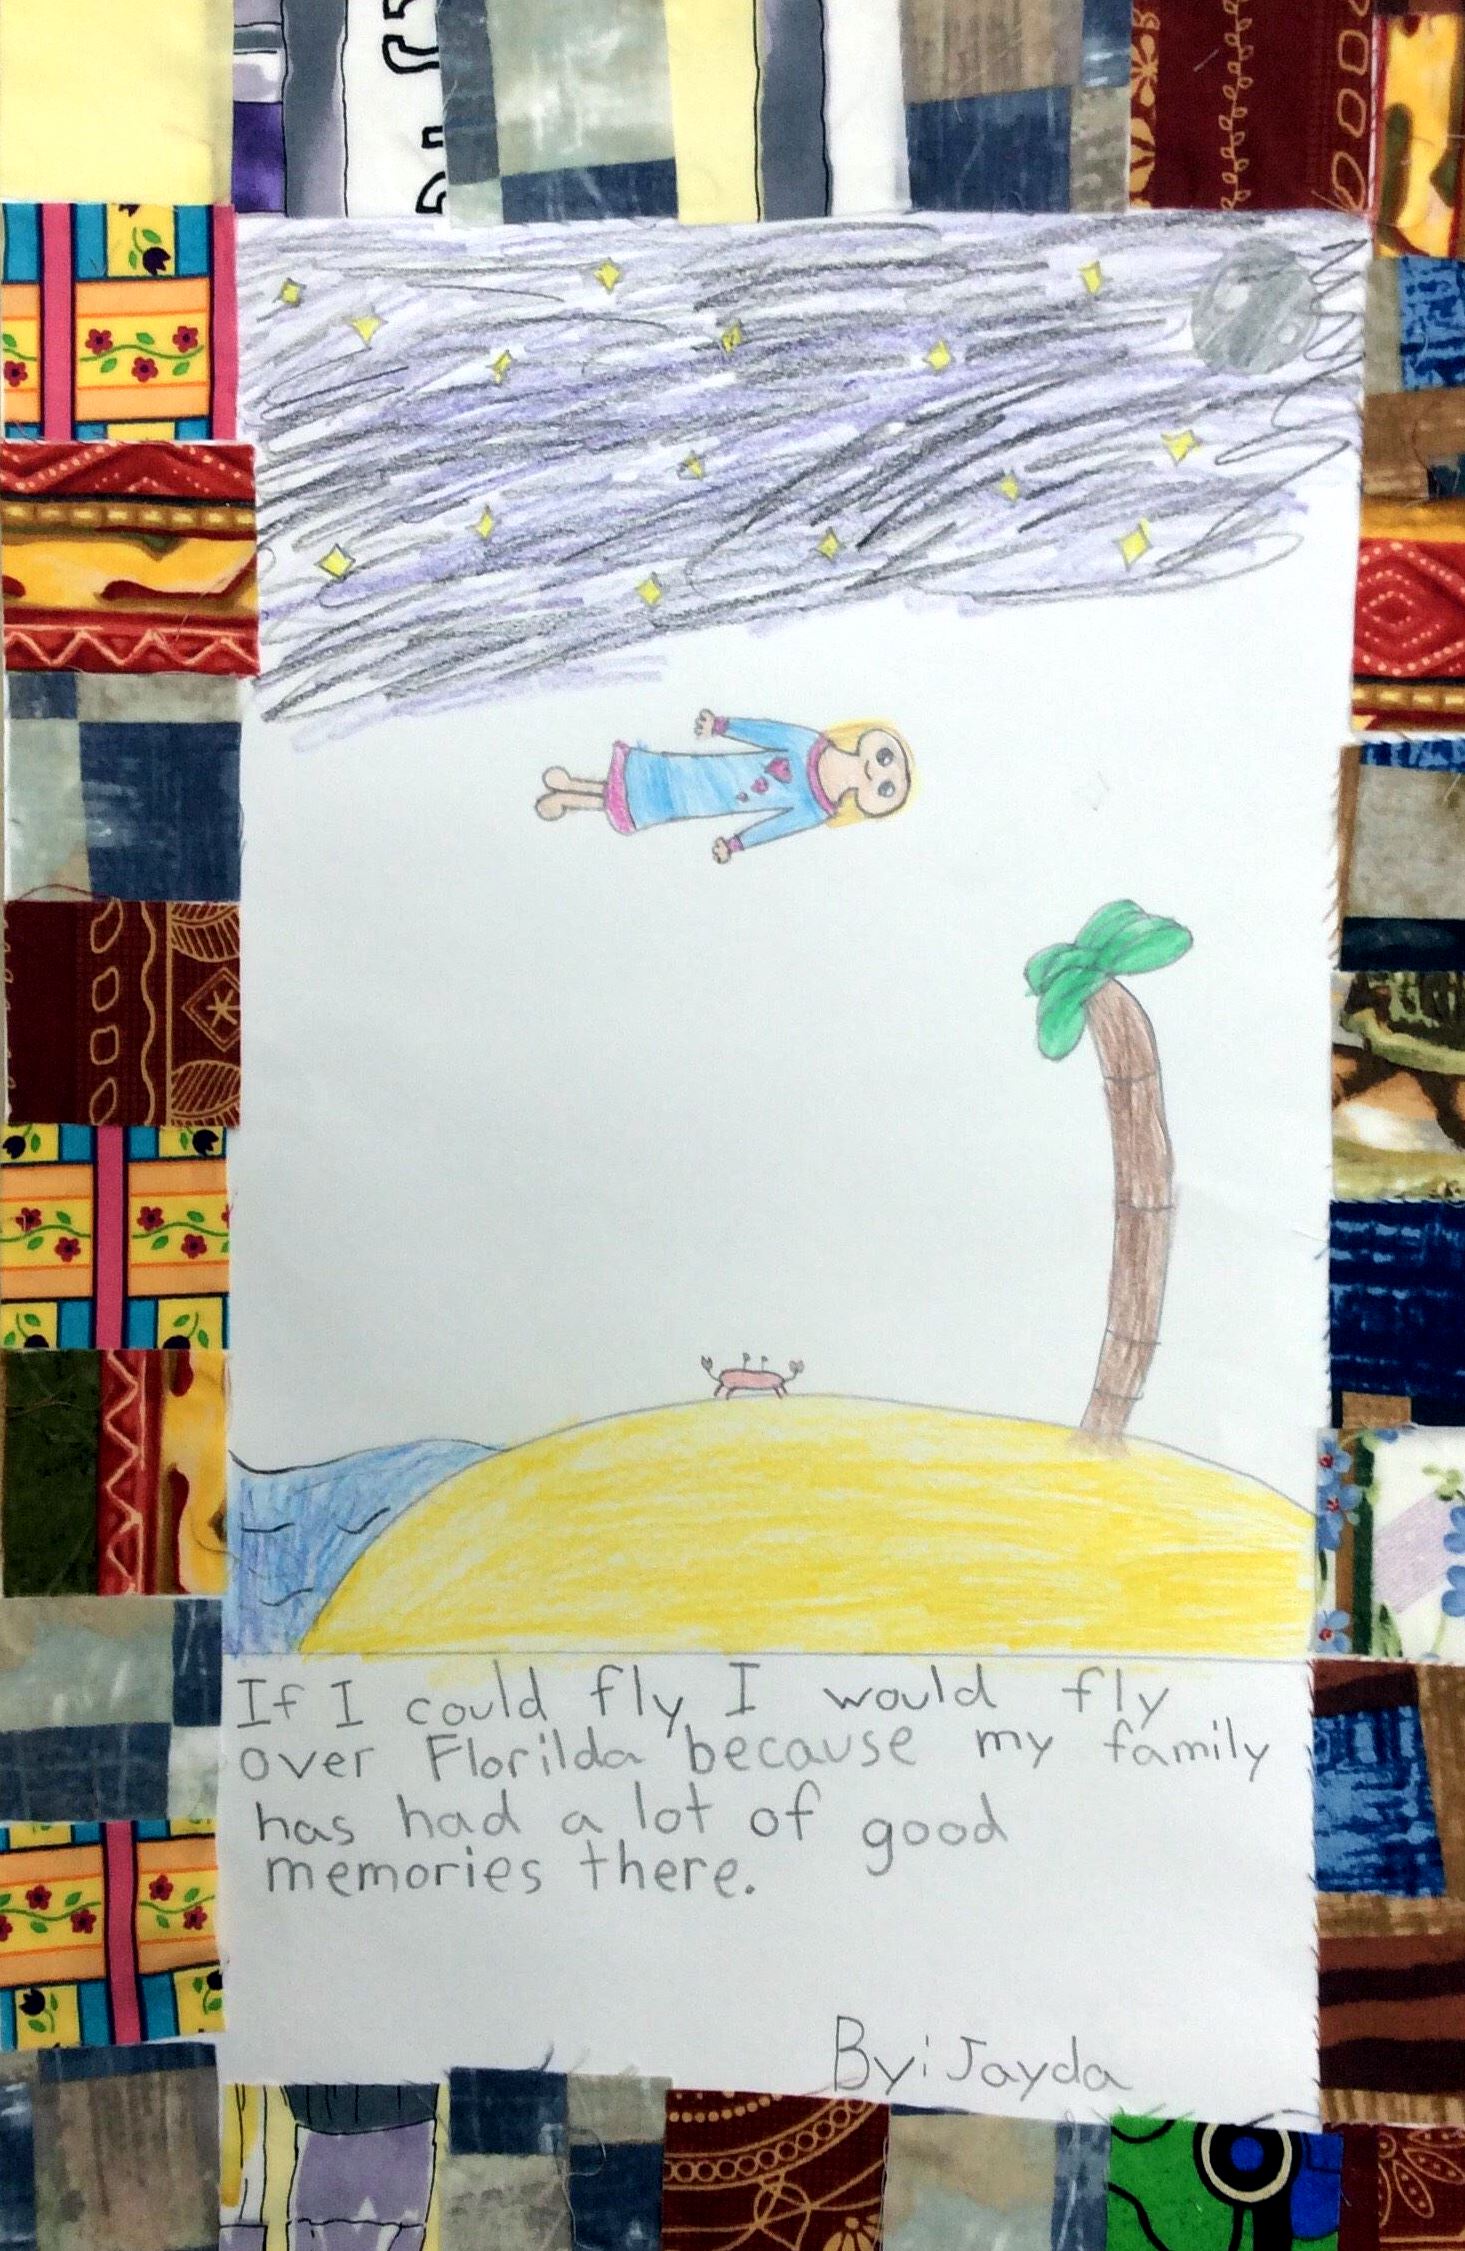 If I could fly, I would fly
over Florilda because my family
has had a lot of good
memories there.
By: Jayda